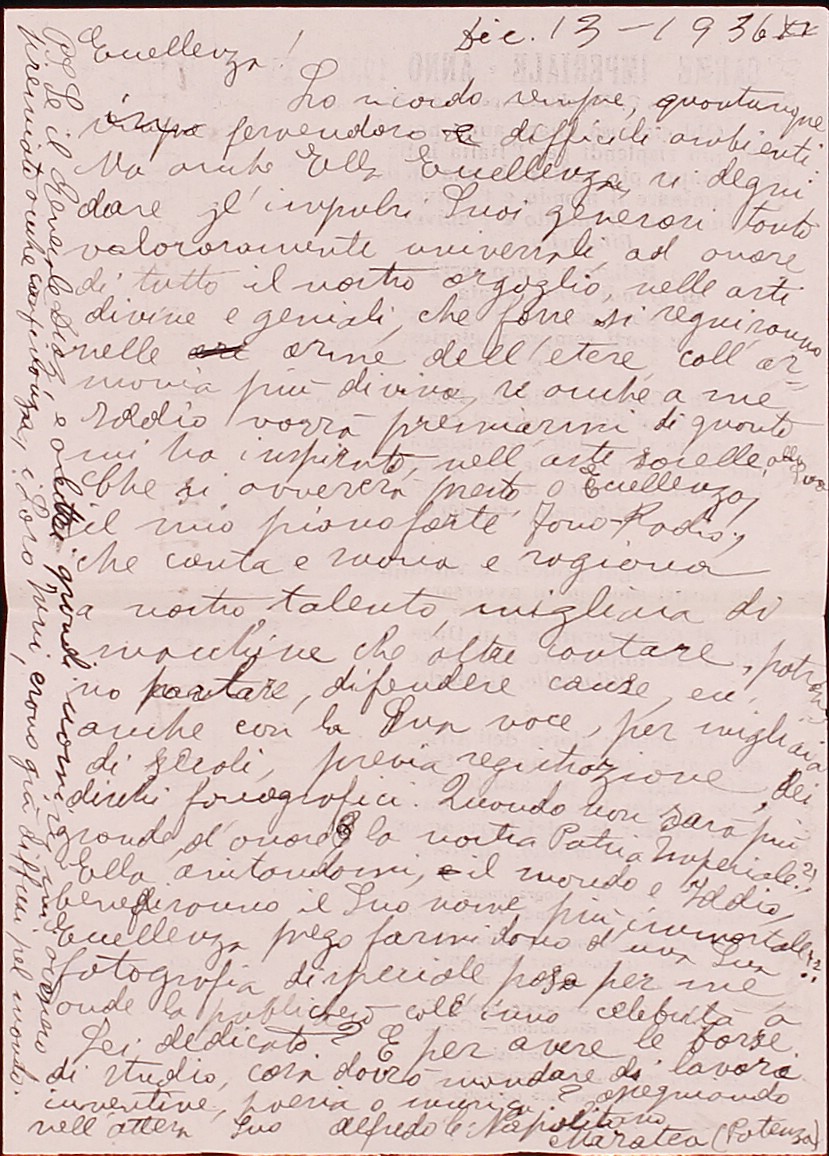 Dic. 13 - 1936 XV
Eccellenza!
Lo ricordo sempre, quantunque
fervendoro difficili ambienti.
Ma anche Ella Eccellenza, si degni
dare gl'impulsi Suoi generosi tanto
valorosamente universali, ad onore
di tutto il nostro orgoglio, nelle arti
divine e geniali, che forse si seguiranno
nelle orme dell'etere, coll'ar-
monia più divina, se anche a me
Iddio vorrà premiarmi di quanto
mi ha inspirato, nell'arte sorelle,
Che si avvererà presto o Eccellenza,
il mio pianoforte Fono-Radio,
che canta e suona e ragiona
a nostro talento, migliaia di
macchine che oltre cantare, potran-
no parlare, difendere cause, ecc,
anche con la Sua voce, per migliaia
di secoli, previa registrazione, dei
dischi fonografici. Quando non sarà più
grande, d'onore la nostra Patria Imperiale?
Ella aiutandomi, il mondo e Iddio,
benediranno il Suo nome più immortale!
Eccellenza prego farmi dono d'una Sua
fotografia di speciale posa per me
onde la pubblicherò coll'inno celebrità a
Lei dedicato? E per avere le borse
di studio, cosa dovrò mandare di lavori
inventive, poesia o musica? ossequiando
nell'attesa Suo Alfredo Napolitano
Maratea (Potenza)
P.S. Se il Generale Diaz e altri grandi uomini
premiato anche i Loro nomi, erano già diffusi pel mondo.